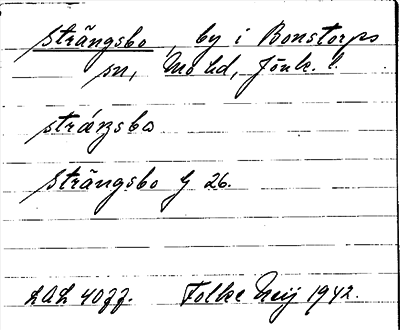 Strängsbo, by i Bonstorps
sn, Mo hd, Jönk. l.
stráŋsbo
Strängsbo G 26.
LAL 4077. Folke Neij 1942.